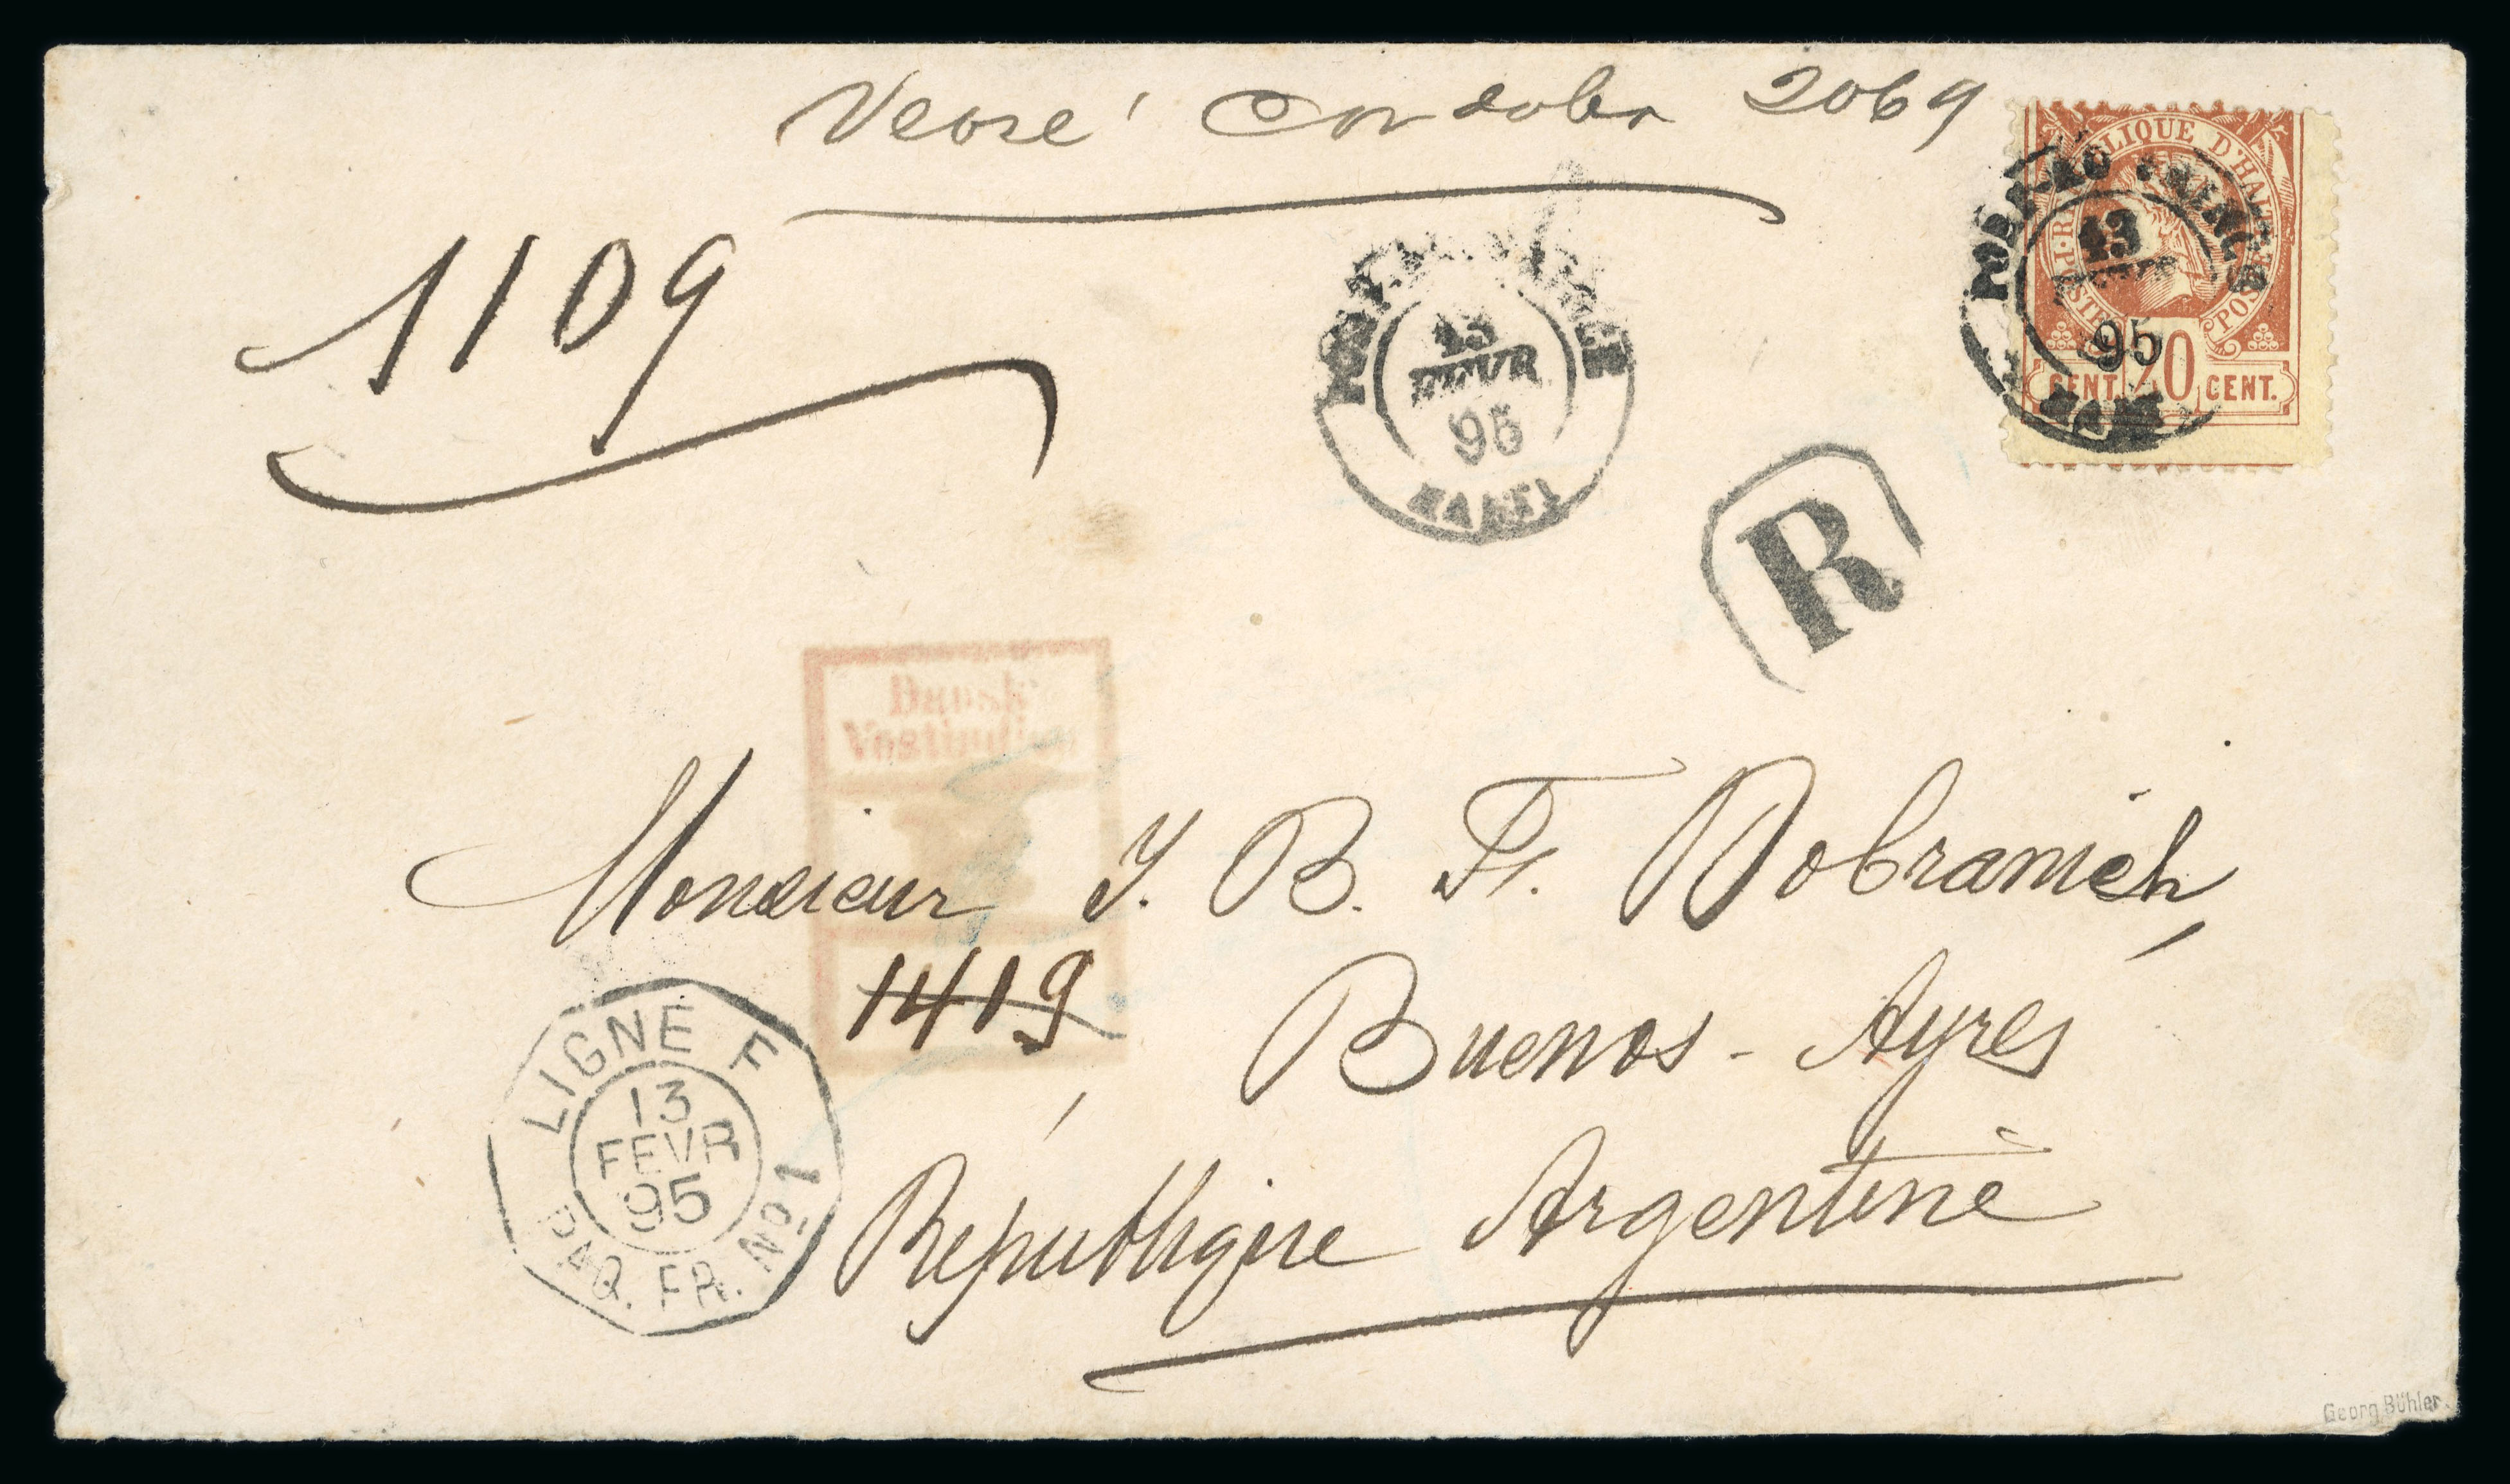 Cordoba 2069
1109
RÉPUBLIQUE D'HAITI
POSTES
POSTES
CENT. 20 CENT.
PORT-AU-PRINCE
13
FEVR
95
HAITI
PORT-AU-PRINCE
13
FEVR
95
HAITI
R
Dansk
Vestindien
Monsieur J. B. Fr. Dobranich,
1419
Buenos-Ayres
République Argentine
LIGNE F
13
FEVR
95
PAQ. FR. No. 1
Georg Bühler